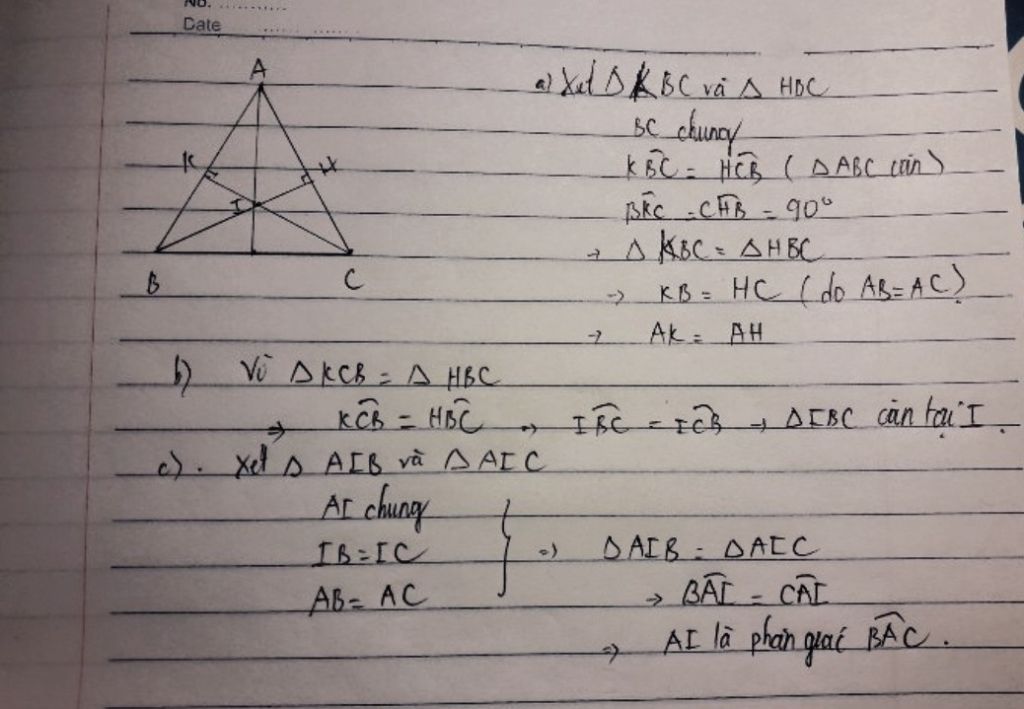 No. ............
Date ............
A
K
H
I
B
C
a) Xét Δ KBC và Δ HBC
BC chung
KB̂C = HĈB ( ΔABC cân )
BK̂C = CĤB = 90°
→ Δ KBC = ΔHBC
→ KB = HC ( do AB=AC )
→ AK = AH
b) Vì ΔKCB = Δ HBC
⇒ KĈB = HB̂C → IB̂C = IĈB → ΔIBC cân tại I.
c). Xét Δ AIB và ΔAIC
AI chung
IB=IC } => ΔAIB = ΔAIC
AB= AC
→ BÂI = CÂI
=> AI là phân giác BÂC.